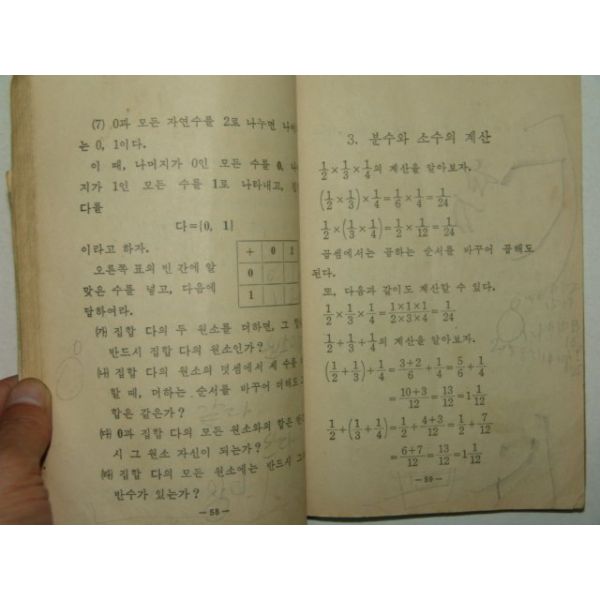 (7) 0과 모든 자연수를 2로 나누면
는 0, 1이다.
이 때, 나머지가 0인 모든 수를 0,
지가 1인 모든 수를 1로 나타내고,
다를
다={0, 1}
이라고 하자.
오른쪽 표의 빈 간에 알
맞은 수를 넣고, 다음에
답하여라.
+ 0 1
0
1
(가) 집합 다의 두 원소를 더하면, 그
반드시 집합 다의 원소인가?
(나) 집합 다의 원소의 덧셈에서 세 수를
할 때, 더하는 순서를 바꾸어 더해도
합은 같은가?
(다) 0과 집합 다의 모든 원소와의 합은
시 그 원소 자신이 되는가?
(라) 집합 다의 모든 원소에는 반드시
반수가 있는가?
— 58 —
3. 분수와 소수의 계산
1/2 × 1/3 × 1/4 의 계산을 알아보자.
(1/2 × 1/3) × 1/4 = 1/6 × 1/4 = 1/24
1/2 × (1/3 × 1/4) = 1/2 × 1/12 = 1/24
곱셈에서는 곱하는 순서를 바꾸어 곱해도
된다.
또, 다음과 같이도 계산할 수 있다.
1/2 × 1/3 × 1/4 = 1×1×1/2×3×4 = 1/24
1/2 + 1/3 + 1/4 의 계산을 알아보자.
(1/2 + 1/3) + 1/4 = 3+2/6 + 1/4 = 5/6 + 1/4
= 10+3/12 = 13/12 = 1 1/12
1/2 + (1/3 + 1/4) = 1/2 + 4+3/12 = 1/2 + 7/12
= 6+7/12 = 13/12 = 1 1/12
— 59 —